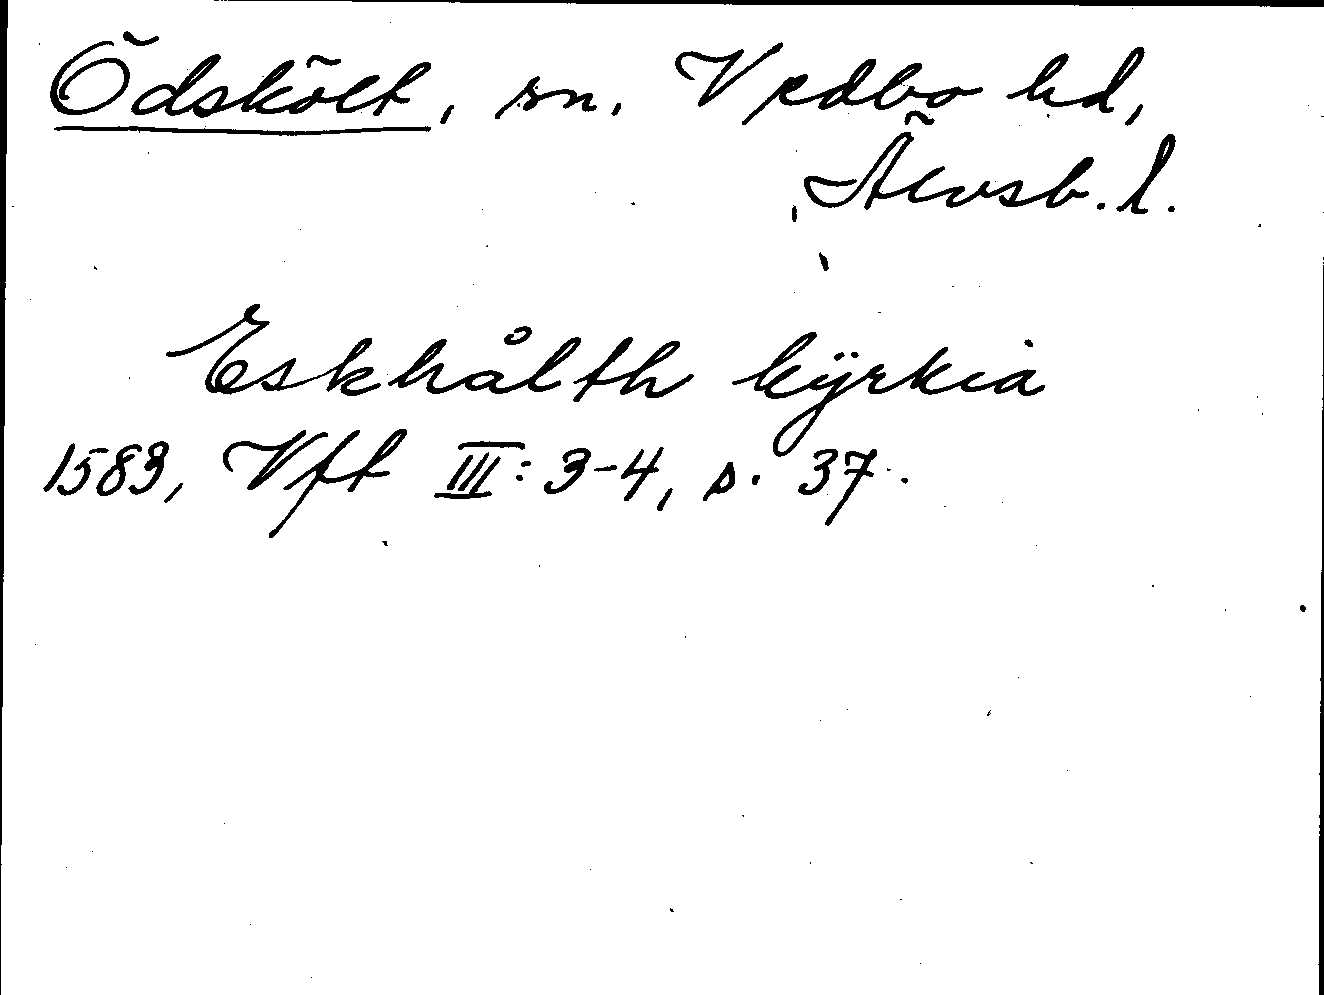 Ödskölt, sn. Vedbo hd,
Älvsb. l.
Eskhålth kÿrkia
1583, Vft III: 3-4, s. 37.